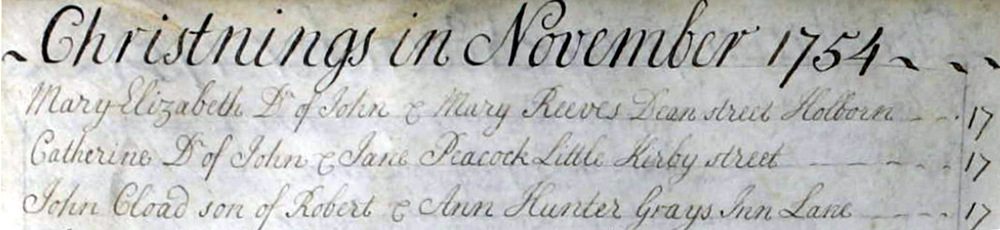 Christnings in November 1754
Mary Elizabeth Dr of John & Mary Reeves Dean street Holborn 17
Catherine Dr of John & Jane Peacock Little Kirby street 17
John Cload son of Robert & Ann Hunter Grays Inn Lane 17